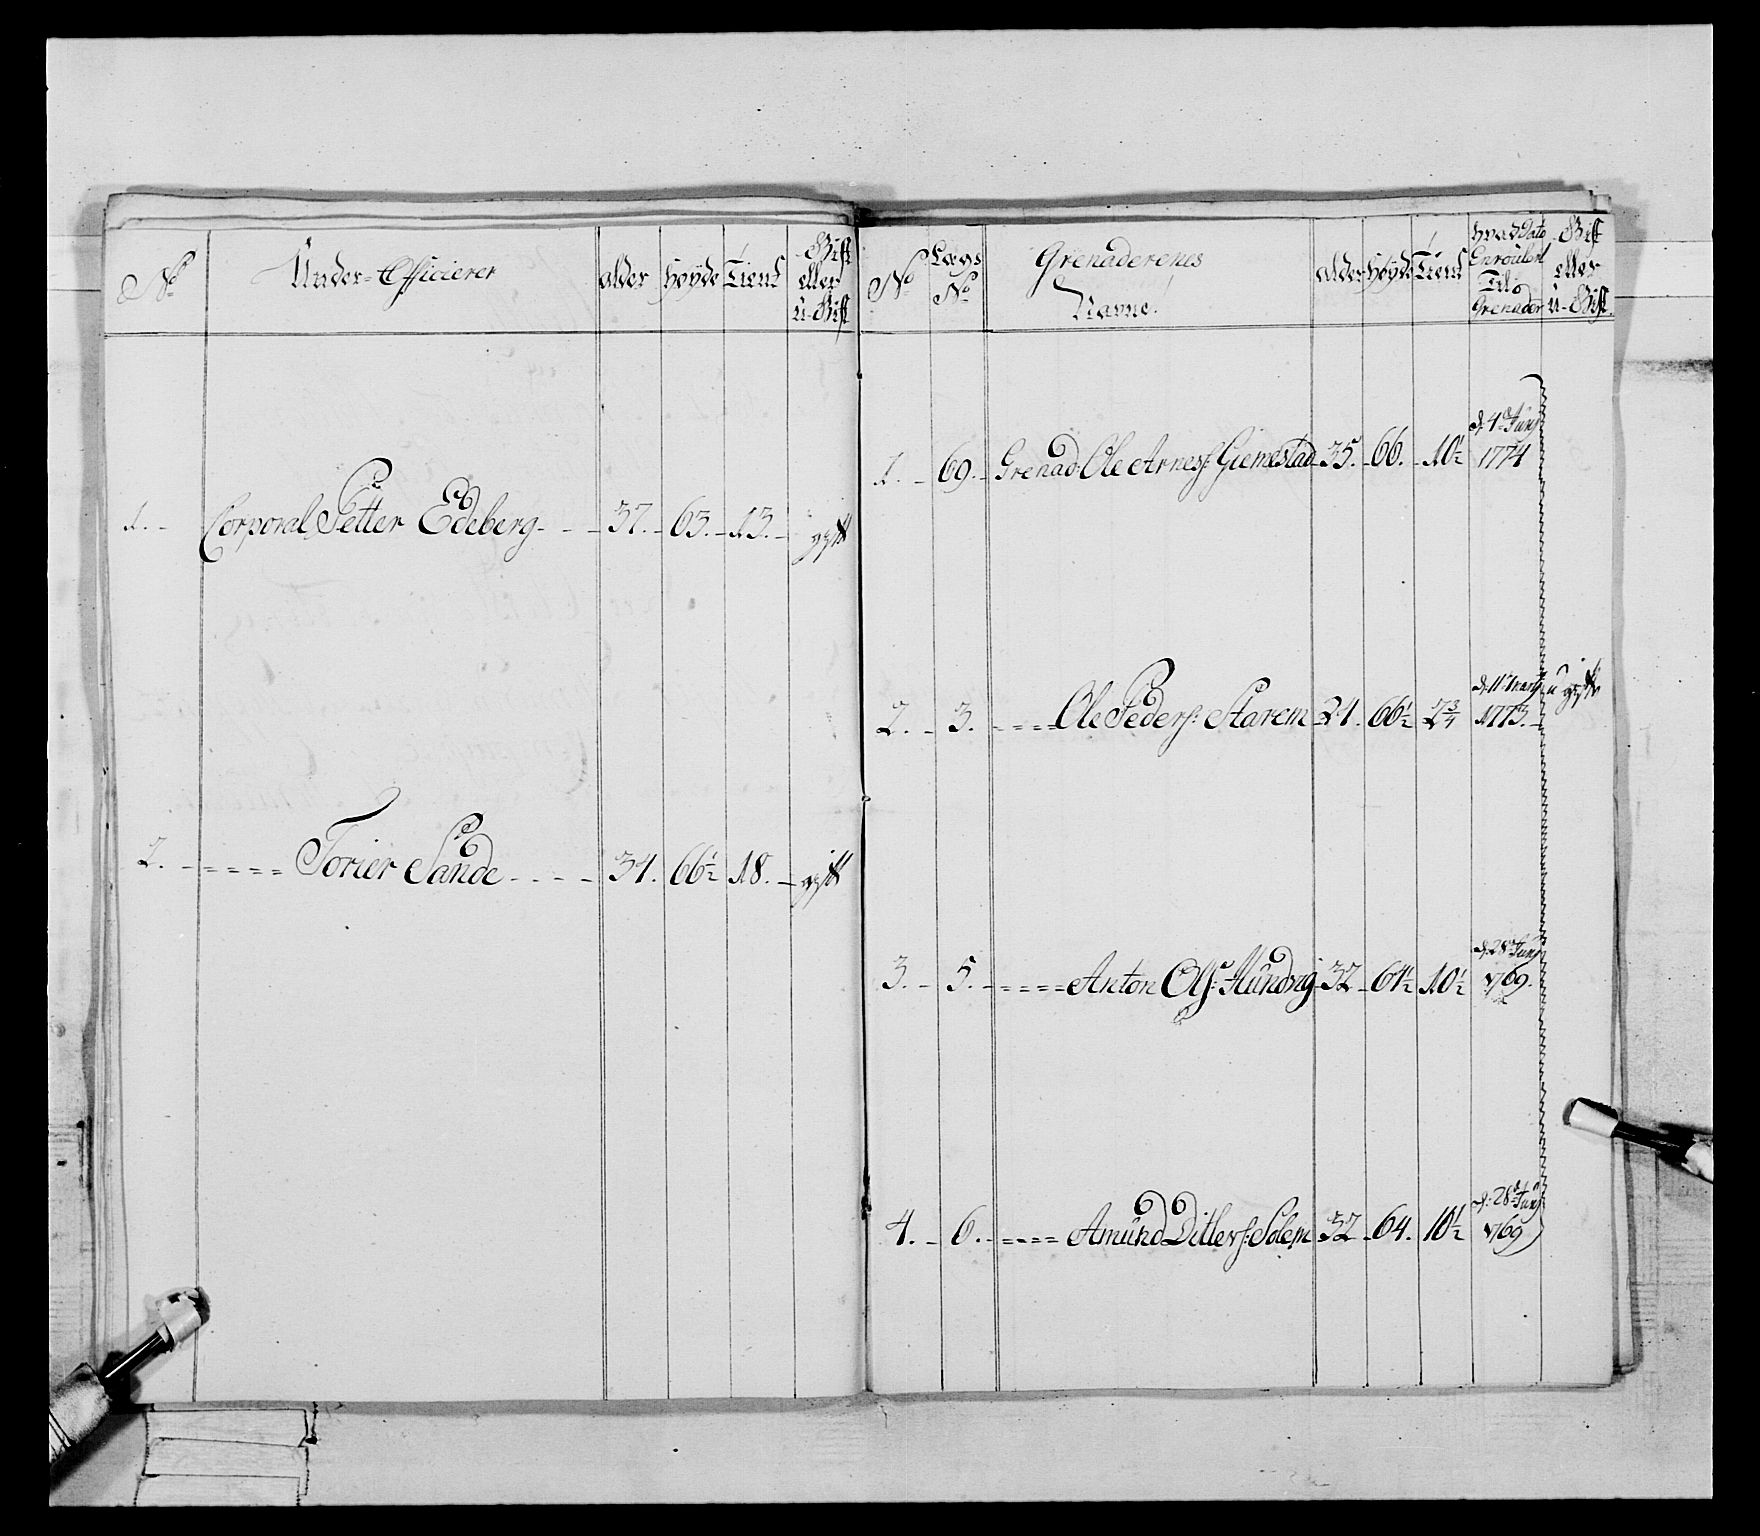 No Under-Officierer alder høyde Tient Gift eller u-Gift
1. Corporal Petter Edeberg 37. 63. 13. gift
2. Torier Sande 34. 66½ 18. gift
No Lægs No Grenaderenes Navne. alder høyde Tient hvad Dato Enroulert Til Grenader Gift eller u-Gift.
1. 69. Grenad: Ole Arness: Giemestad 35. 66. 10½ d. 4de Juny 1774
2. 3. Ole Peders: Starem 24. 66½ 2¾ d. 11te Marty 1773. u gift
3. 5. Anton Ols: 32 64½ 10½ d. 28de Juny 1769.
4. 6. Amund Ditlevs: Solem 32 64. 10½ d. 28de Juny 1769